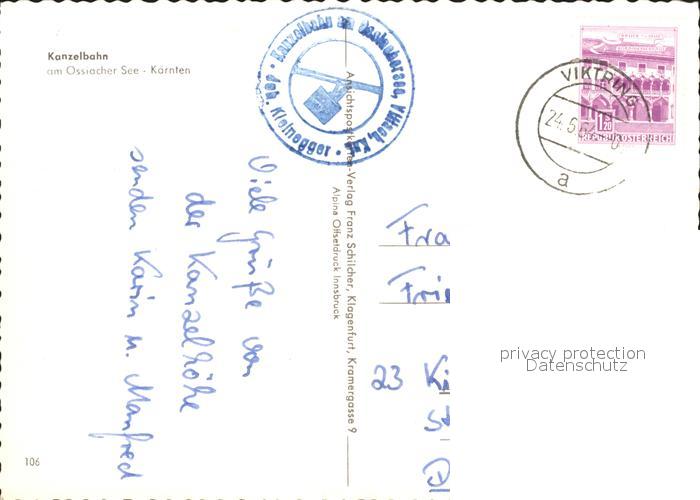 Kanzelbahn
am Ossiacher See - Kärnten
Kanzelbahn am Ossiachersee, Villach, Ktn.
Joh. Kleinegger
VIKTRING
24.5.62
a
1.20
REPUBLIK ÖSTERREICH
Viele Grüße von
der Kanzelhöhe
senden Karin u. Manfred
Ansichtspostkarten-Verlag Franz Schilcher, Klagenfurt, Kramergasse 9
Alpina Offsetdruck Innsbruck
Fra
Fri
23 Ki
privacy protection
Datenschutz
106